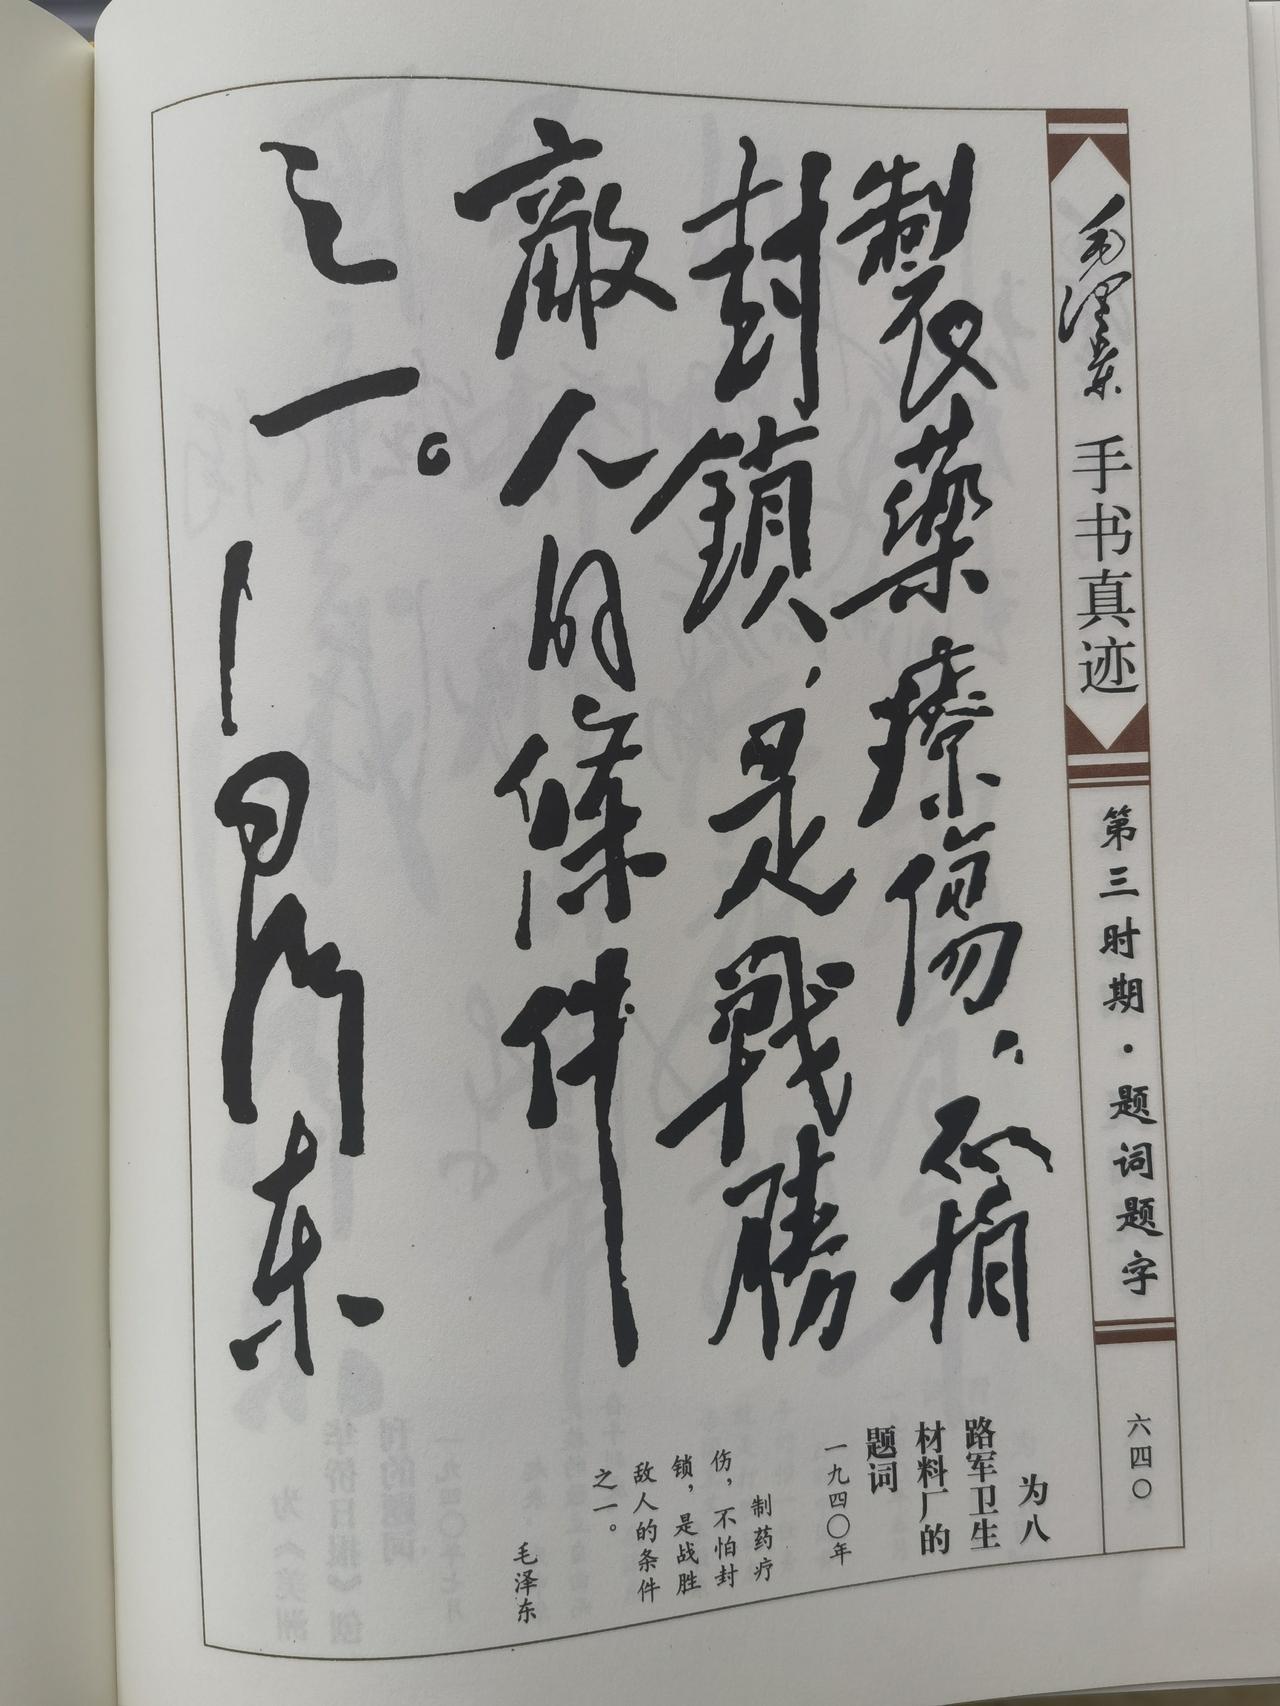 毛泽东 手书真迹
第三时期·题词题字
六四〇
製藥療傷，不怕
封鎖，是戰勝
敵人的條件
之一。
毛澤東
为八
路军卫生
材料厂的
题词
一九四〇年
制药疗
伤，不怕封
锁，是战胜
敌人的条件
之一。
毛泽东